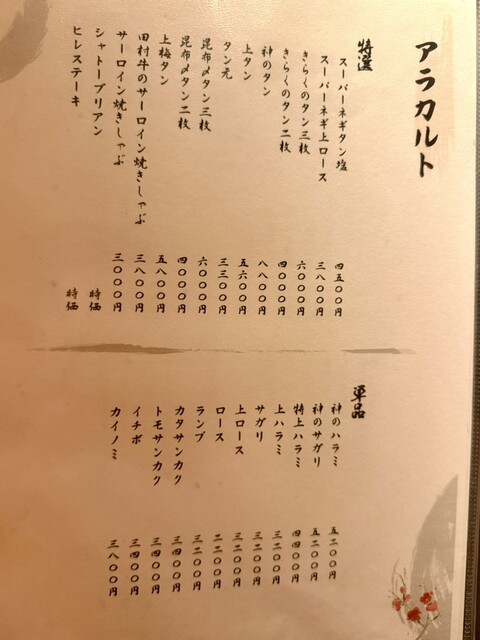 アラカルト
特選
スーパーネギタン塩 四五〇〇円
スーパーネギ上ロース 三八〇〇円
きらくのタン三枚 六〇〇〇円
きらくのタン二枚 四〇〇〇円
神のタン 八八〇〇円
上タン 五六〇〇円
タン元 三三〇〇円
昆布〆タン三枚 六〇〇〇円
昆布〆タン二枚 四〇〇〇円
上梅タン 五八〇〇円
田村牛のサーロイン焼きしゃぶ 三八〇〇円
サーロイン焼きしゃぶ 三〇〇〇円
シャトーブリアン 時価
ヒレステーキ 時価
単品
神のハラミ 五二〇〇円
神のサガリ 五二〇〇円
特上ハラミ 四四〇〇円
上ハラミ 三二〇〇円
サガリ 三二〇〇円
上ロース 三二〇〇円
ロース 二二〇〇円
ランプ 三二〇〇円
カタサンカク 三四〇〇円
トモサンカク 三四〇〇円
イチボ 三四〇〇円
カイノミ 三八〇〇円